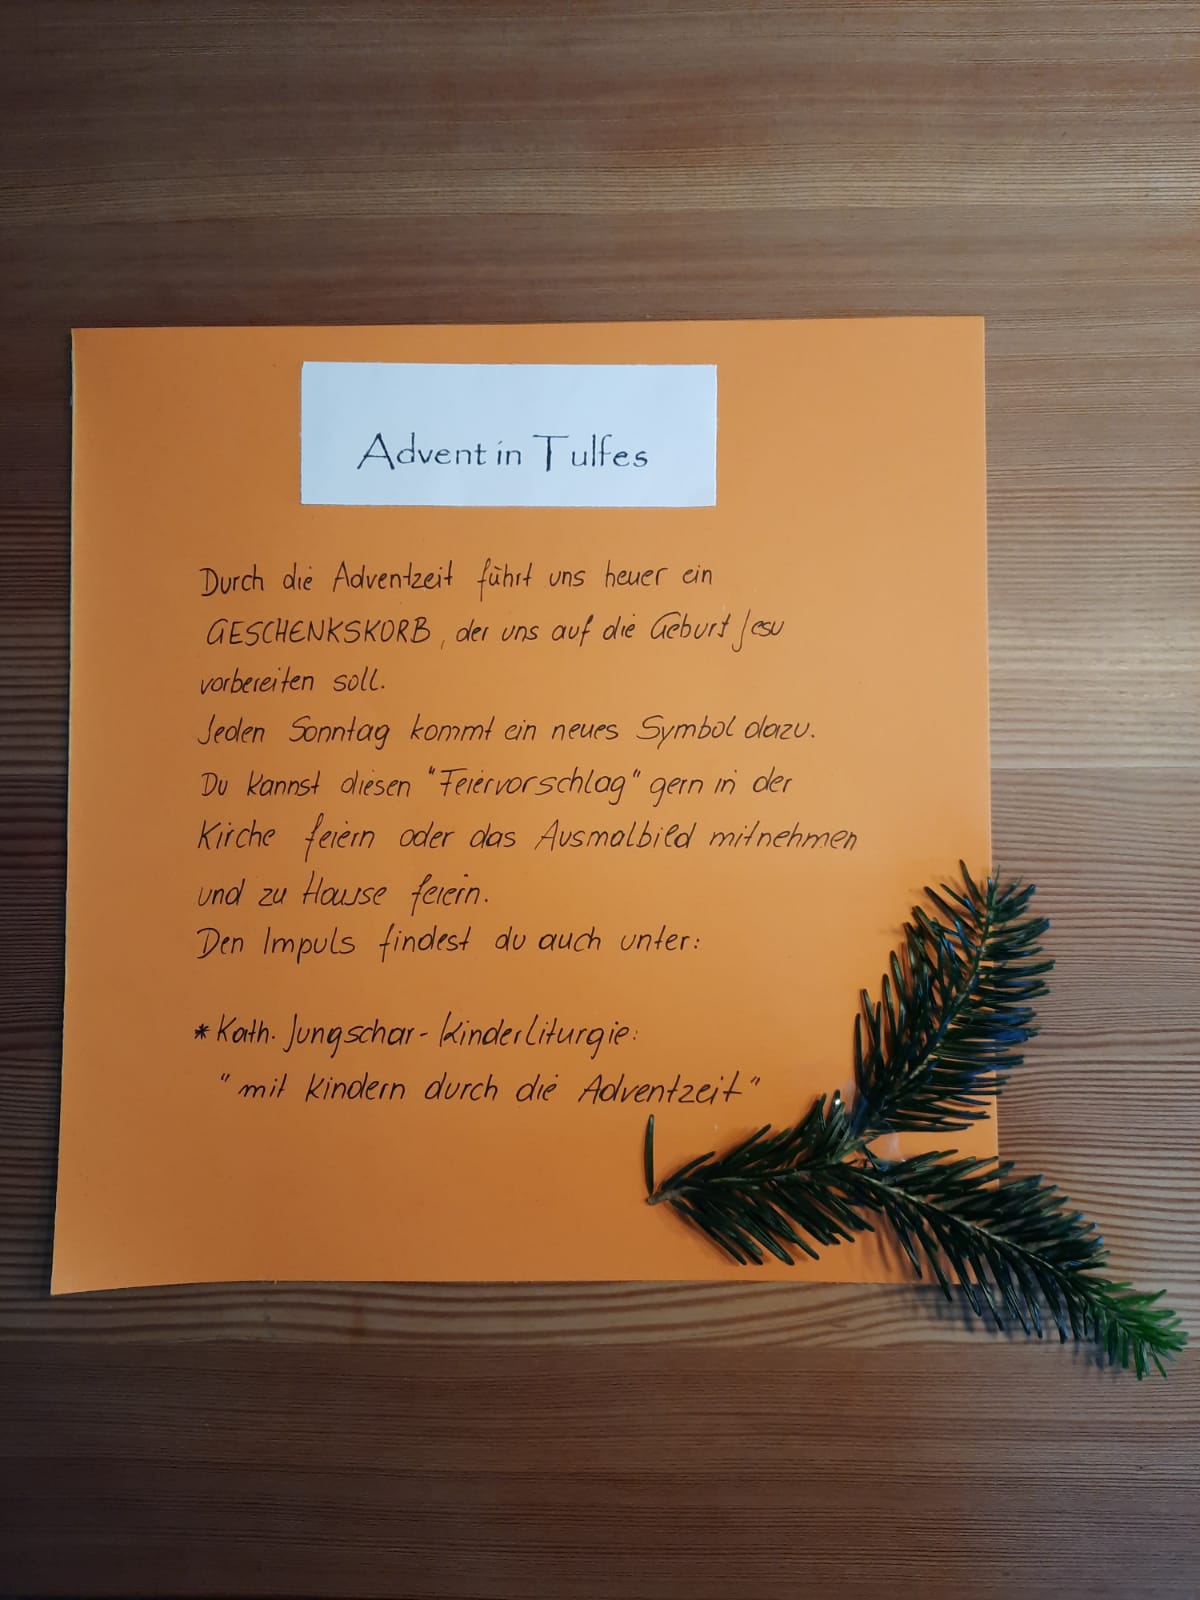 Advent in Tulfes
Durch die Adventzeit führt uns heuer ein
GESCHENKSKORB, der uns auf die Geburt Jesu
vorbereiten soll.
Jeden Sonntag kommt ein neues Symbol dazu.
Du kannst diesen "Feiervorschlag" gern in der
Kirche feiern oder das Ausmalbild mitnehmen
und zu Hause feiern.
Den Impuls findest du auch unter:
* Kath. Jungschar - Kinderliturgie:
"mit Kindern durch die Adventzeit"